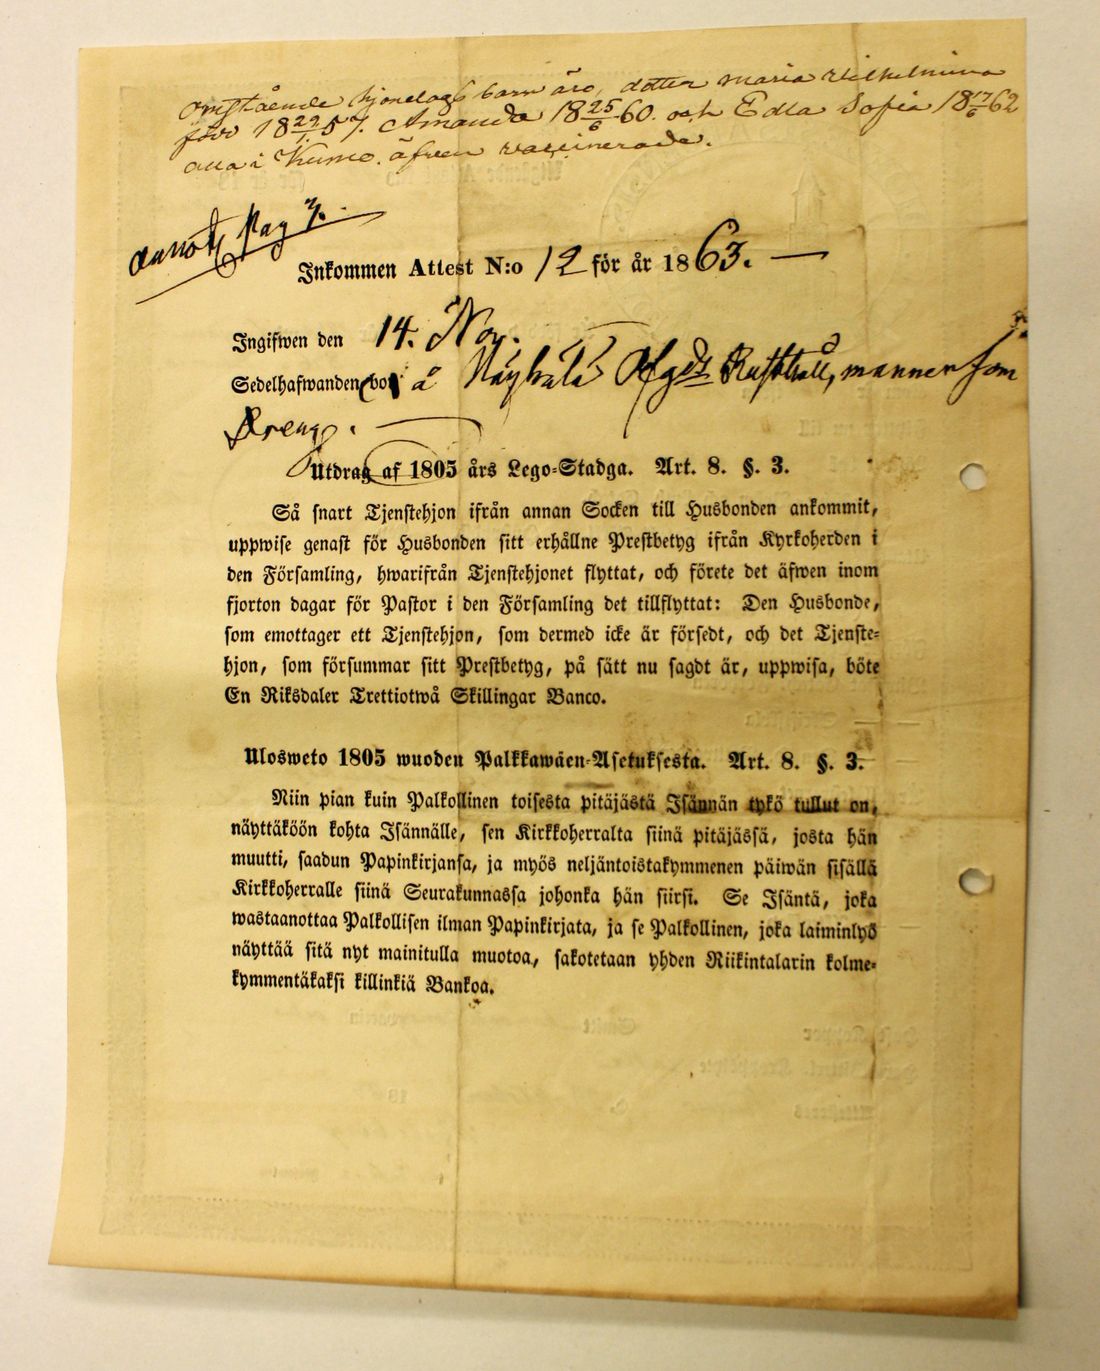 Omstående hjonelags barn äro, dotter Maria Wilhelmina
född 18 29/1 57. Amanda 18 25/6 60. och Edla Sofia 18 17/6 62
alla i Kumo. äfven vaccinerade.
annot. pag 7.
Inkommen Attest N:o 12 för år 1863.
Ingifwen den 14. Nov.
Sedelhafwanden bor å Rusthåll, mannen som
Dreng.
Utdrag af 1805 års Lego-Stadga. Art. 8. §. 3.
Så snart Tjenstehjon ifrån annan Socken till Husbonden ankommit,
uppwise genast för Husbonden sitt erhållne Prestbetyg ifrån Kyrkoherden i
den Församling, hwarifrån Tjenstehjonet flyttat, och förete det äfwen inom
fjorton dagar för Pastor i den Församling det tillflyttat: Den Husbonde,
som emottager ett Tjenstehjon, som dermed icke är försedt, och det Tjenste-
hjon, som försummar sitt Prestbetyg, på sätt nu sagdt är, uppwisa, böte
En Riksdaler Trettiotwå Skillingar Banco.
Ulosweto 1805 wuoden Palkkawäen-Asetuksesta. Art. 8. §. 3.
Niin pian kuin Palkollinen toisesta pitäjästä Isännän tykö tullut on,
näyttäköön kohta Isännälle, sen Kirkkoherralta siinä pitäjässä, josta hän
muutti, saadun Papinkirjansa, ja myös neljäntoistakymmenen päiwän sisällä
Kirkkoherralle siinä Seurakunnassa johonka hän siirsi. Se Isäntä, joka
wastaanottaa Palkollisen ilman Papinkirjata, ja se Palkollinen, joka laiminlyö
näyttää sitä nyt mainitulla muotoa, sakotetaan yhden Riikintalarin kolme-
kymmentäkaksi killinkiä Bankoa.